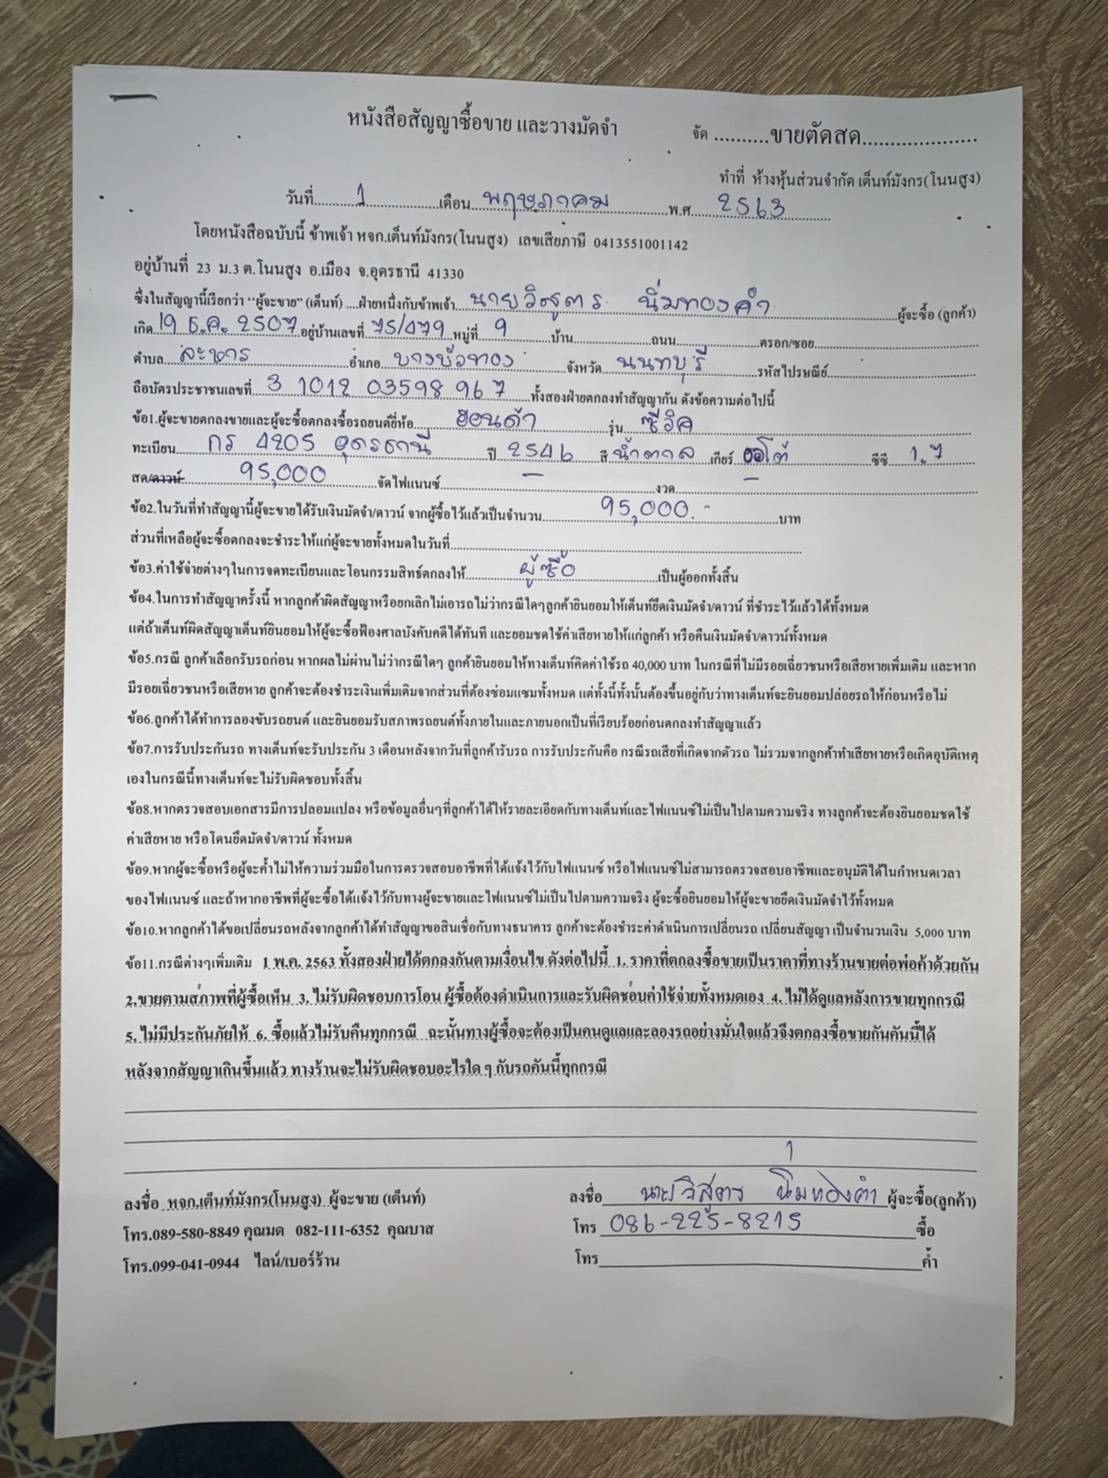 หนังสือสัญญาซื้อขาย และวางมัดจำ จัด ..........ขายตัดสด....................
ทำที่ ห้างหุ้นส่วนจำกัด เต็นท์มังกร(โนนสูง)
วันที่.........1..............เดือน..พฤษภาคม..............พ.ศ......2563.........
โดยหนังสือฉบับนี้ ข้าพเจ้า หจก.เต็นท์มังกร(โนนสูง) เลขเสียภาษี 0413551001142
อยู่บ้านที่ 23 ม.3 ต.โนนสูง อ.เมือง จ.อุดรธานี 41330
ซึ่งในสัญญานี้เรียกว่า "ผู้จะขาย" (เต็นท์) ....ฝ่ายหนึ่งกับข้าพเจ้า...นายวิสูตร นิ่มทองคำ..................ผู้จะซื้อ (ลูกค้า)
เกิด 19 ธ.ค. 2507 อยู่บ้านเลขที่ 75/479 หมู่ที่ 9 ........บ้าน....................ถนน....................ตรอก/ซอย....................
ตำบล...ละหาร..............อำเภอ...บางบัวทอง..........จังหวัด...นนทบุรี..........รหัสไปรษณีย์....................
ถือบัตรประชาชนเลขที่...3 1012 03598 967.....ทั้งสองฝ่ายตกลงทำสัญญากัน ดังข้อความต่อไปนี้
ข้อ1.ผู้จะขายตกลงขายและผู้จะซื้อตกลงซื้อรถยนต์ยี่ห้อ........ฮอนด้า..............รุ่น......ซีวิค....................
ทะเบียน......กร 4205 อุดรธานี..........ปี 2546 สี น้ำตาล เกียร์ ออโต้ ..........ซีซี 1.7
สด/ดาวน์...........95,000..........จัดไฟแนนซ์..........–..............งวด..........–....................
ข้อ2.ในวันที่ทำสัญญานี้ผู้จะขายได้รับเงินมัดจำ/ดาวน์ จากผู้ซื้อไว้แล้วเป็นจำนวน..........95,000.-..........บาท
ส่วนที่เหลือผู้จะซื้อตกลงจะชำระให้แก่ผู้จะขายทั้งหมดในวันที่............................................................
ข้อ3.ค่าใช้จ่ายต่างๆในการจดทะเบียนและโอนกรรมสิทธ์ตกลงให้..........ผู้ซื้อ..............เป็นผู้ออกทั้งสิ้น
ข้อ4.ในการทำสัญญาครั้งนี้ หากลูกค้าผิดสัญญาหรือยกเลิกไม่เอารถไม่ว่ากรณีใดๆลูกค้ายินยอมให้เต็นท์ยึดเงินมัดจำ/ดาวน์ ที่ชำระไว้แล้วได้ทั้งหมด
แต่ถ้าเต็นท์ผิดสัญญาเต็นท์ยินยอมให้ผู้จะซื้อฟ้องศาลบังคับคดีได้ทันที และยอมชดใช้ค่าเสียหายให้แก่ลูกค้า หรือคืนเงินมัดจำ/ดาวน์ทั้งหมด
ข้อ5.กรณี ลูกค้าเลือกรับรถก่อน หากผลไม่ผ่านไม่ว่ากรณีใดๆ ลูกค้ายินยอมให้ทางเต็นท์คิดค่าใช้รถ 40,000 บาท ในกรณีที่ไม่มีรอยเฉี่ยวชนหรือเสียหายเพิ่มเติม และหาก
มีรอยเฉี่ยวชนหรือเสียหาย ลูกค้าจะต้องชำระเงินเพิ่มเติมจากส่วนที่ต้องซ่อมแซมทั้งหมด แต่ทั้งนี้ทั้งนั้นต้องขึ้นอยู่กับว่าทางเต็นท์จะยินยอมปล่อยรถให้ก่อนหรือไม่
ข้อ6.ลูกค้าได้ทำการลองขับรถยนต์ และยินยอมรับสภาพรถยนต์ทั้งภายในและภายนอกเป็นที่เรียบร้อยก่อนตกลงทำสัญญาแล้ว
ข้อ7.การรับประกันรถ ทางเต็นท์จะรับประกัน 3 เดือนหลังจากวันที่ลูกค้ารับรถ การรับประกันคือ กรณีรถเสียที่เกิดจากตัวรถ ไม่รวมจากลูกค้าทำเสียหายหรือเกิดอุบัติเหตุ
เองในกรณีนี้ทางเต็นท์จะไม่รับผิดชอบทั้งสิ้น
ข้อ8.หากตรวจสอบเอกสารมีการปลอมแปลง หรือข้อมูลอื่นๆที่ลูกค้าได้ให้รายละเอียดกับทางเต็นท์และไฟแนนซ์ไม่เป็นไปตามความจริง ทางลูกค้าจะต้องยินยอมชดใช้
ค่าเสียหาย หรือโดนยึดมัดจำ/ดาวน์ ทั้งหมด
ข้อ9.หากผู้จะซื้อหรือผู้จะค้ำไม่ให้ความร่วมมือในการตรวจสอบอาชีพที่ได้แจ้งไว้กับไฟแนนซ์ หรือไฟแนนซ์ไม่สามารถตรวจสอบอาชีพและอนุมัติได้ในกำหนดเวลา
ของไฟแนนซ์ และถ้าหากอาชีพที่ผู้จะซื้อได้แจ้งไว้กับทางผู้จะขายและไฟแนนซ์ไม่เป็นไปตามความจริง ผู้จะซื้อยินยอมให้ผู้จะขายยึดเงินมัดจำไว้ทั้งหมด
ข้อ10.หากลูกค้าได้ขอเปลี่ยนรถหลังจากลูกค้าได้ทำสัญญาขอสินเชื่อกับทางธนาคาร ลูกค้าจะต้องชำระค่าดำเนินการเปลี่ยนรถ เปลี่ยนสัญญา เป็นจำนวนเงิน 5,000 บาท
ข้อ11.กรณีต่างๆเพิ่มเติม 1 พ.ค. 2563 ทั้งสองฝ่ายได้ตกลงกันตามเงื่อนไข ดังต่อไปนี้ 1. ราคาที่ตกลงซื้อขายเป็นราคาที่ทางร้านขายต่อพ่อค้าด้วยกัน
2.ขายตามสภาพที่ผู้ซื้อเห็น 3. ไม่รับผิดชอบการโอน ผู้ซื้อต้องดำเนินการและรับผิดชอบค่าใช้จ่ายทั้งหมดเอง 4. ไม่ได้ดูแลหลังการขายทุกกรณี
5. ไม่มีประกันภัยให้ 6. ซื้อแล้วไม่รับคืนทุกกรณี ฉะนั้นทางผู้ซื้อจะต้องเป็นคนดูแลและลองรถอย่างมั่นใจแล้วจึงตกลงซื้อขายกันคันนี้ได้
หลังจากสัญญาเกินขึ้นแล้ว ทางร้านจะไม่รับผิดชอบอะไรใด ๆ กับรถคันนี้ทุกกรณี
ลงชื่อ หจก.เต็นท์มังกร(โนนสูง) ผู้จะขาย (เต็นท์) ลงชื่อ นายวิสูตร นิ่มทองคำ ผู้จะซื้อ(ลูกค้า)
โทร.089-580-8849 คุณมด 082-111-6352 คุณบาส โทร 086-225-8215 ซื้อ
โทร.099-041-0944 ไลน์/เบอร์ร้าน โทร____________________ค้ำ